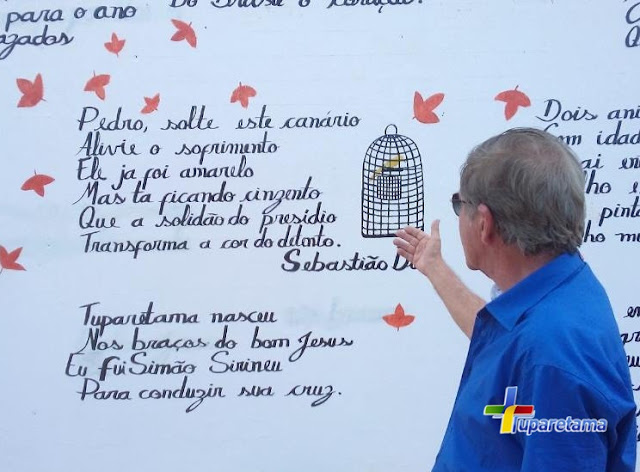 para o ano
Do Brasil o coração.
azados
Pedro, solte este canário
Alivie o sofrimento
Ele ja foi amarelo
Mas ta ficando cinzento
Que a solidão do presídio
Transforma a cor do detento.
Sebastião
Tuparetama nasceu
Nos braços do bom Jesus
Eu Fui Simão Sirineu
Para conduzir sua cruz.
Dois
Com idad
Tuparetama